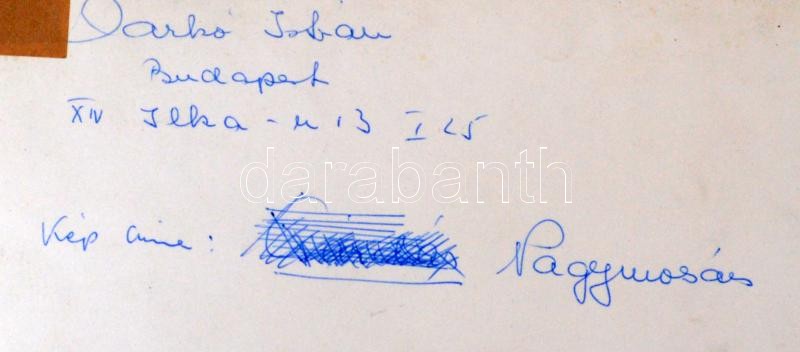 Darkó István
Budapest
XIV Ilka-u 13 I 25
darabanth
Kép címe: Nagymosás